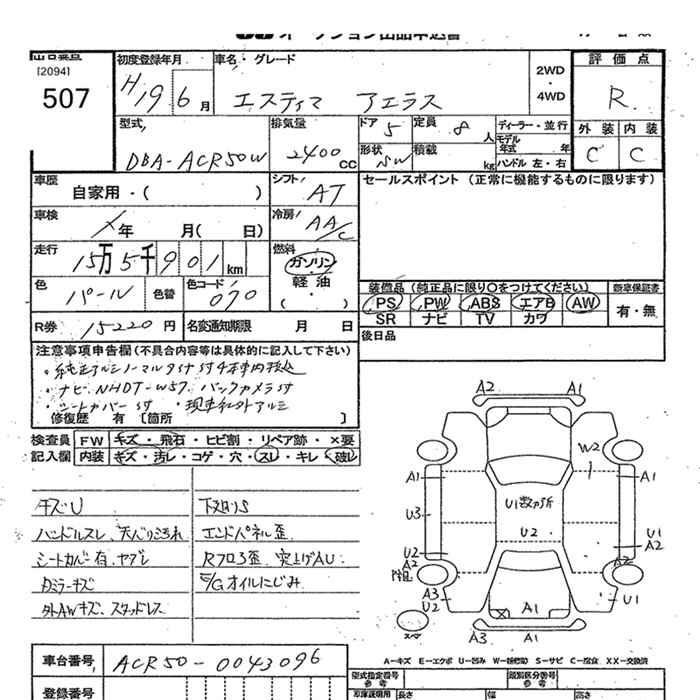 オークション出品申込書
[2094]
507
初度登録年月
H19 6月
車名・グレード
エスティマ アエラス
2WD
・
4WD
評価点
R
外装 内装
C C
型式
DBA-ACR50W
排気量
2400CC
ドア 5
定員 8人
形状 SW
積載 kg
ディーラー・並行
モデル年式 年
ハンドル 左・右
車歴
自家用・( )
シフト
AT
セールスポイント(正常に機能するものに限ります)
車検
年 月( 日)
冷房
AA/C
走行
15万5千901km
燃料
ガソリン
軽油
・( )
色
パール
色替
色コード
070
装備品(純正品に限り〇をつけてください)
PS PW ABS エアB AW
SR ナビ TV カワ
新車保証書
有・無
後日品
R券 15220円
名変通知期限 月 日
注意事項申告欄(不具合内容等は具体的に記入して下さい)
・純正アルミノーマルタイヤ付4本車内積込
・ナビNHDT-W57 バックカメラ付
・シートカバー付 ・現車社外アルミ
修復歴 有〔箇所 〕
検査員記入欄
FW キズ・飛石・ヒビ割・リペア跡・×要
内装 キズ・汚レ・コゲ・穴・スレ・キレ・破レ
キズU
ハンドルスレ、天バリ汚れ
シートカバー有、ヤブレ
ドアミラーキズ
外AWキズ、スタッドレス
下廻りS
エンドパネル歪
Rフロア歪 突上げAU
E/Gオイルにじみ
A2 A1
W2
A1 A1
U1数ヶ所
U3
U2
U1
A2
U2
A2
A2
A3
U2
U1
A1
スペア
A3 A1
A-キズ E-エクボ U-凹み W-補修跡 S-サビ C-腐食 XX-交換済
車台番号 ACR50-0043096
登録番号
型式指定番号
参考
類別区分番号
参考
車庫証明用
参考
長さ 幅 高さ